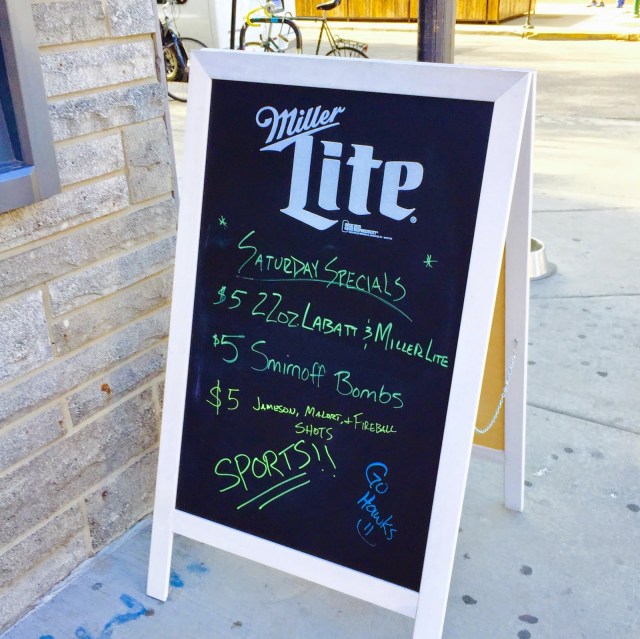 Miller
Lite
* SATURDAY SPECIALS *
$5 22oz LABATT & MILLER LITE
$5 Smirnoff Bombs
$5 JAMESON, MALORT, + FIREBALL
SHOTS
SPORTS!!
Go
Hawks